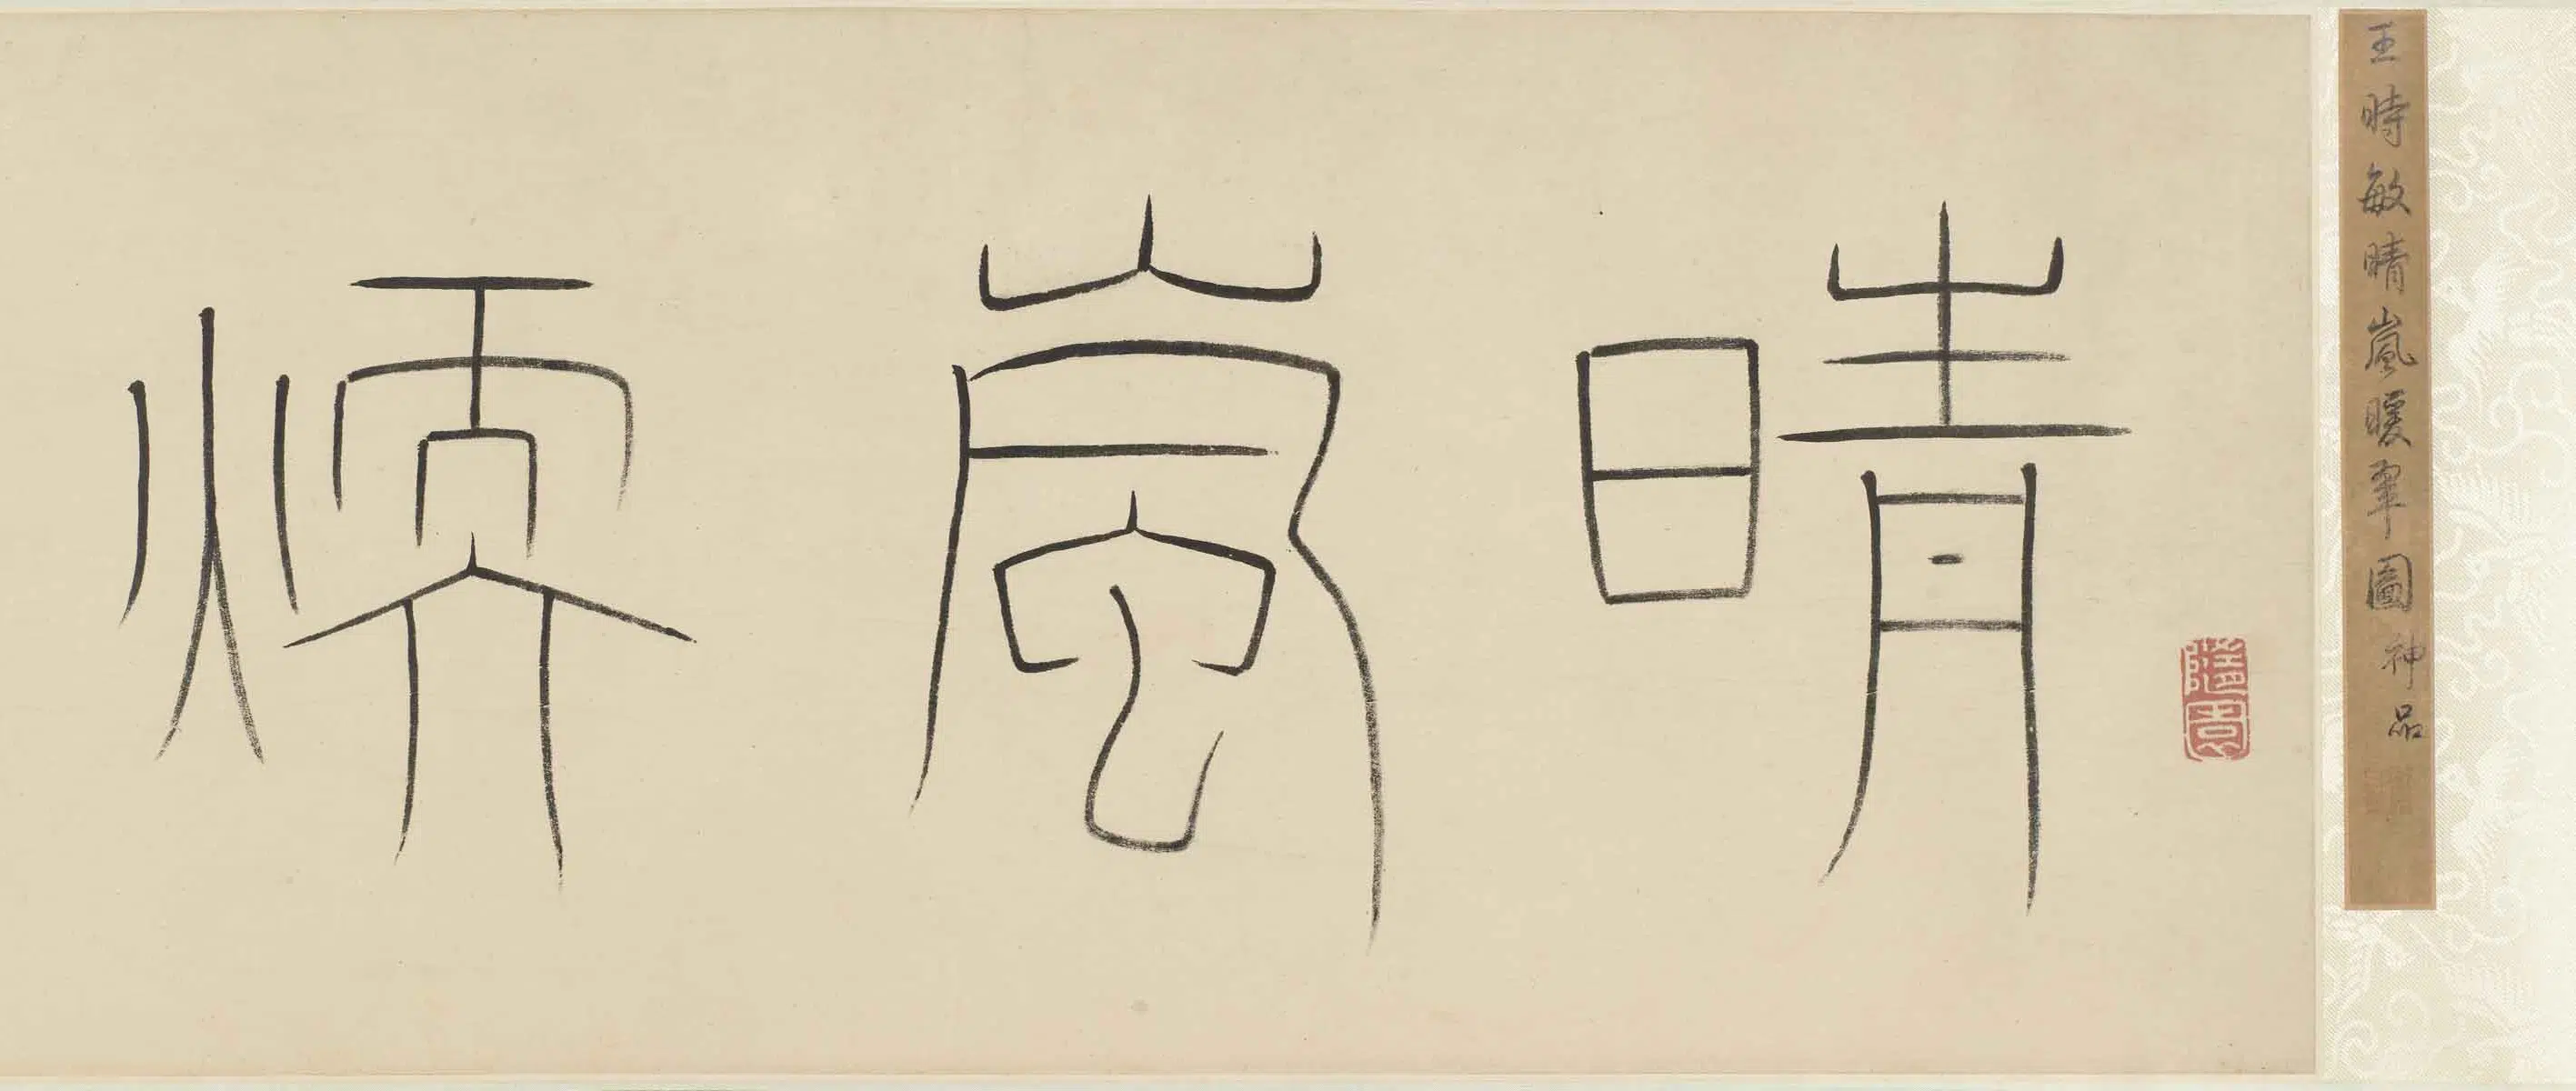 王時敏晴嵐暖翆圖
神品
晴嵐煗